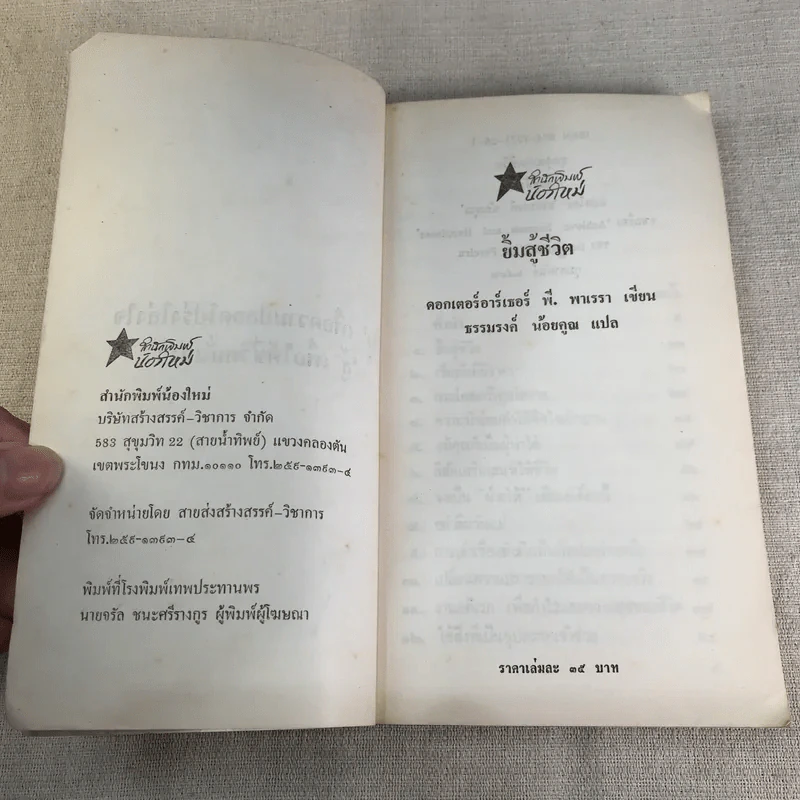 สำนักพิมพ์
น้องใหม่
สำนักพิมพ์น้องใหม่
บริษัทสร้างสรรค์-วิชาการ จำกัด
583 สุขุมวิท 22 (สายน้ำทิพย์) แขวงคลองตัน
เขตพระโขนง กทม.๑๐๑๑๐ โทร.๒๕๙-๑๓๙๓-๔
จัดจำหน่ายโดย สายส่งสร้างสรรค์-วิชาการ
โทร.๒๕๙-๑๓๙๓-๔
พิมพ์ที่โรงพิมพ์เทพประทานพร
นายจรัล ชนะศรีรางกูร ผู้พิมพ์ผู้โฆษณา
สำนักพิมพ์
น้องใหม่
ยิ้มสู้ชีวิต
ดอกเตอร์อาร์เธอร์ พี. พาเรรา เขียน
ธรรมรงค์ น้อยคูณ แปล
ราคาเล่มละ ๓๕ บาท